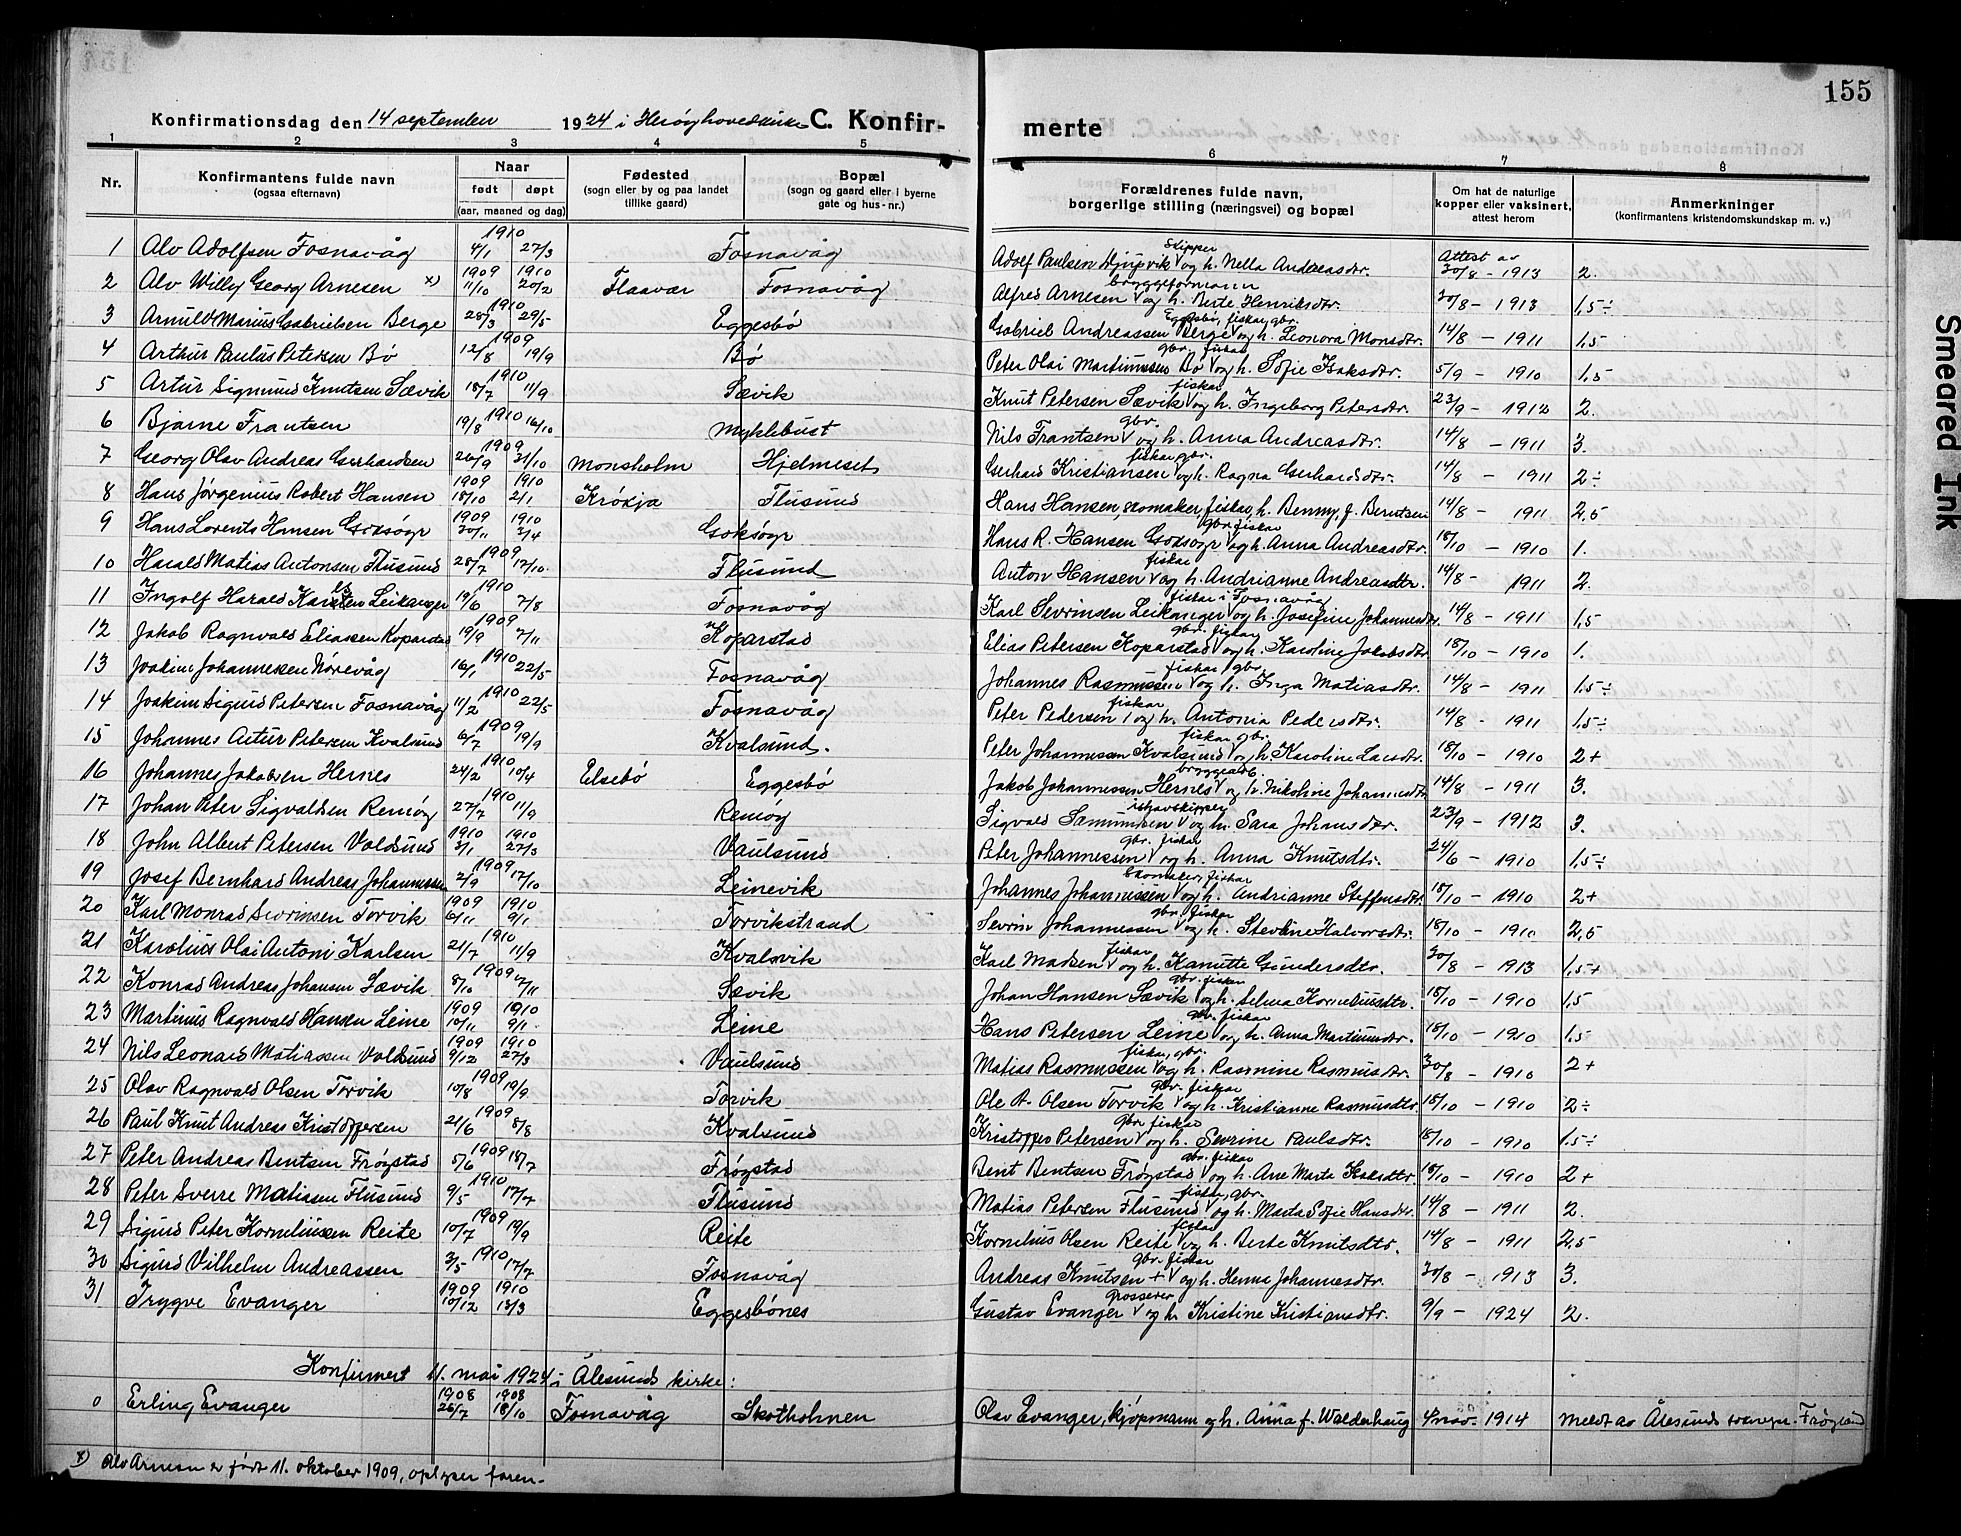 155
Konfirmationsdag den 14 september 1924 i Herøy hovedkirke C. Konfirmerte
1 2 3 4 5 6 7 8
Nr. Konfirmantens fulde navn (ogsaa efternavn) Naar født døpt (aar, maaned og dag) Fødested (sogn eller by og paa landet tillike gaard) Bopæl (sogn og gaard eller i byerne gate og hus-nr.) Forældrenes fulde navn, borgerlige stilling (næringsvei) og bopæl Om hat de naturlige kopper eller vaksinert, attest herom Anmerkninger (konfirmantens kristendomskundskap m. v.)
1 Alv Adolfsen Fosnavåg 1910 4/1 27/3 Fosnavåg Adolf Paulsen Djupvik skipper og h. Nella Andreasdtr. Attest av 30/8 - 1913 2.
2 Alv Willy Georg Arnesen x) 1909 11/10 1910 20/2 Flaavær Fosnavåg Alfred Arnesen bryggeformann og h. Berte Henriksdtr. 30/8 - 1913 1,5÷
3 Arnulv Marius Gabrielsen Berge 1910 28/3 29/5 Eggesbø Gabriel Andreassen Berge Eggesbø, fiskar, gbr. og h. Leonora Monsdtr. 14/8 - 1911 1,5
4 Arthur Paulus Petersen Bø 1909 12/8 19/9 Bø Peter Olai Martinussen Bø gbr. fiskar og h. Sofie Isaksdtr. 5/9 - 1910 1,5
5 Artur Sigmund Knutsen Sævik 1910 18/7 11/9 Sævik Knut Petersen Sævik fiskar og h. Ingeborg Petersdtr. 23/9 - 1912 2.
6 Bjarne Frantsen 1910 19/8 16/10 Myklebust Nils Frantsen gbr. og h. Anna Andreasdtr. 14/8 - 1911 3.
7 Georg Olav Andreas Gerhardsen 1909 26/9 31/10 Monsholm Hjelmeset Gerhard Kristiansen fiskar gbr. og h. Ragna Gerhardsdtr. 14/8 - 1911 2÷
8 Hans Jørgenius Robert Hansen 1909 18/10 1910 2/1 Krøkja Flusund Hans Hansen, skomaker, fiskar, h. Benny, f. Berntsen 14/8 - 1911 2,5
9 Hans Lorents Hansen Goksøyr 1909 30/11 1910 3/4 Goksøyr Hans R. Hansen Goksøyr gbr. fiskar og h. Anna Andreasdtr. 18/10 - 1910 1.
10 Harald Matias Antonsen Flusund 1909 28/7 17/10 Flusund Anton Hansen fiskar og h. Andrianne Andreasdtr. 14/8 - 1911 2.
11 Ingolf Harald Karlsen Leikanger 1910 19/6 7/8 Fosnavåg Karl Sevrinsen Leikanger fiskar i Fosnavåg og h. Josefine Johannesdtr. 14/8 - 1911 1,5
12 Jakob Ragnvald Eliassen Koparstad 1909 19/9 7/11 Koparstad Elias Petersen Koparstad gbr. fiskar og h. Karoline Jakobsdtr. 18/10 - 1910 1.
13 Joakim Johannessen Nørevåg 1910 16/1 22/5 Fosnavåg Johannes Rasmussen fiskar gbr. og h. Inga Matiasdtr. 14/8 - 1911 1,5÷
14 Joakim Sigurd Petersen Fosnavåg 1910 11/2 22/5 Fosnavåg Peter Pedersen fiskar og h. Antonia Pedersdtr. 14/8 - 1911 1,5÷
15 Johannes Artur Petersen Kvalsund 1909 6/7 19/9 Kvalsund. Peter Johannessen Kvalsund fiskar gbr. og h. Karoline Larsdtr. 18/10 - 1910 2+
16 Johannes Jakobsen Hernes 1910 24/2 10/4 Elsebø Eggesbø Jakob Johannessen Hernes bryggearb. og h. Nikoline Johannesdtr. 14/8 - 1911 3.
17 Johan Peter Sigvaldsen Remøy 1910 27/7 11/9 Remøy Sigvald Samundsen ishavskipper og h. Sara Johansdtr. 23/9 - 1912 3.
18 John Albert Petersen Voldsund 1910 3/1 1910 27/3 Vaulsund Peter Johannessen gbr. fiskar og h. Anna Knutsdtr. 24/6 - 1910 1,5÷
19 Josef Bernhard Andreas Johannessen 1909 2/9 17/10 Leinevik Johannes Johannessen skomaker, fiskar og h. Andrianne Steffensdtr. 18/10 - 1910 2+
20 Karl Monrad Sevrinsen Torvik 1909 6/11 1910 9/1 Torvikstrand Sevrin Johannessen gbr. fiskar og h. Stevline Halvorsdtr. 18/10 - 1910 2,5
21 Karolius Olai Antoni Karlsen 1910 21/7 11/9 Kvalsvik Karl Madsen fiskar og h. Kanutte Gundersdtr. 30/8 - 1913 1,5+
22 Konrad Andreas Johansen Sævik 1909 8/10 7/11 Sævik Johan Hansen Sævik gbr. fiskar og h. Selma Korneliusdtr. 18/10 - 1910 1,5
23 Martinus Ragnvald Hansen Leine 1909 10/11 1910 9/1 Leine Hans Petersen Leine gbr. fiskar og h. Anna Martinusdtr. 18/10 - 1910 1,5
24 Nils Leonard Matiassen Voldsund 1909 9/12 1910 27/3 Vaulsund Matias Rasmussen fiskar, gbr. og h. Rasmine Rasmusdtr. 30/8 - 1910 2+
25 Olav Ragnvald Olsen Torvik 1909 10/8 19/9 Torvik Ole A. Olsen Torvik gbr. fiskar og h. Kristianne Rasmusdtr. 18/10 - 1910 2÷
26 Paul Knut Andreas Kristoffersen 1909 21/6 8/8 Kvalsund Kristoffer Petersen gbr. fiskar og h. Sevrine Paulsdtr. 18/10 - 1910 1,5÷
27 Peter Andreas Bentsen Frøystad 1909 5/6 18/7 Frøystad Berit Bentsen Frøystad gbr. fiskar og h. Ane Marta Isaksdtr. 18/10 - 1910 2+
28 Peter Sverre Matiassen Flusund 1910 9/5 17/7 Flusund Matias Petersen Flusund fiskar, gbr. og h. Marta Sofie Hansdtr. 14/8 - 1911 2.
29 Sigurd Peter Korneliussen Reite 1909 10/7 19/9 Reite Kornelius Olsen Reite fiskar og h. Berte Knutsdtr. 14/8 - 1911 2,5
30 Sigurd Vilhelm Andreassen 1910 3/5 17/7 Fosnavåg Andreas Knutsen + gbr. fiskar og h. Henna Johannesdtr. 30/8 - 1913 3.
31 Trygve Evanger 1909 10/12 1910 13/3 Eggesbønes Gustav Evanger grosserer og h. Kristine Kristiansdtr. 9/9 - 1924 2.
Konfirmert 11. mai 1924 i Ålesund kirke:
0 Erling Evanger 1908 26/7 1908 18/10 Fosnavåg Skotholmen Olav Evanger, kjøpmann og h. Anna f. Walderhaug nov. 1914 Meldt av Ålesund soknepr. Frøyland
x) Alv Arnesen er født 11. oktober 1909, oplyser faren.
Smeared Ink